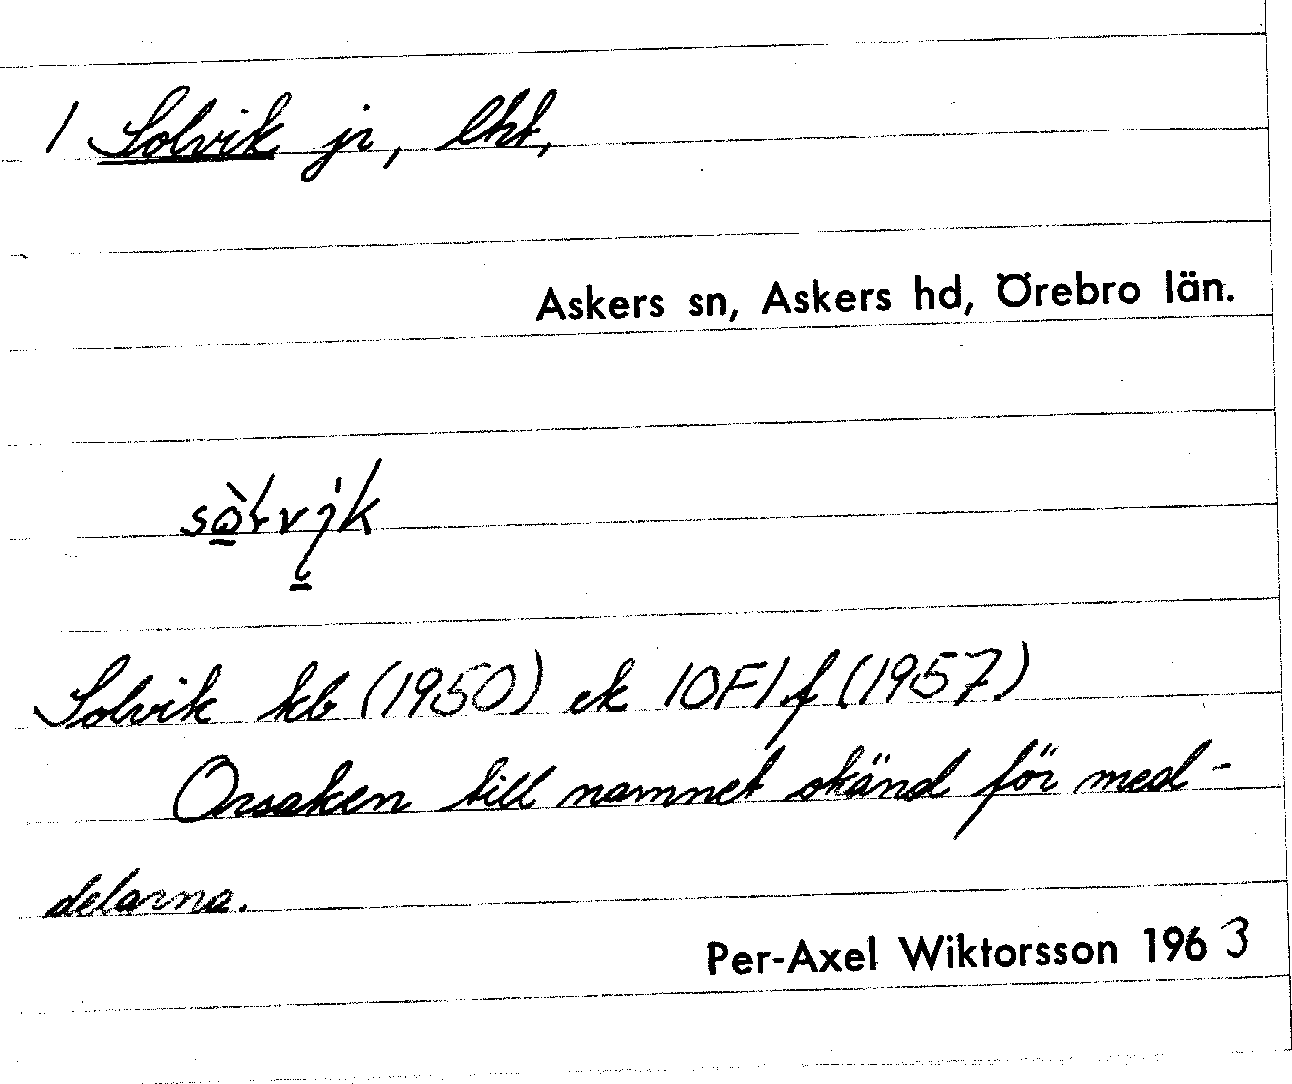 1 Solvik jr, lht,
Askers sn, Askers hd, Örebro län.
Solvik kb (1950) ek 10F1f (1957)
Orsaken till namnet okänd för med-
delarna.
Per-Axel Wiktorsson 1963